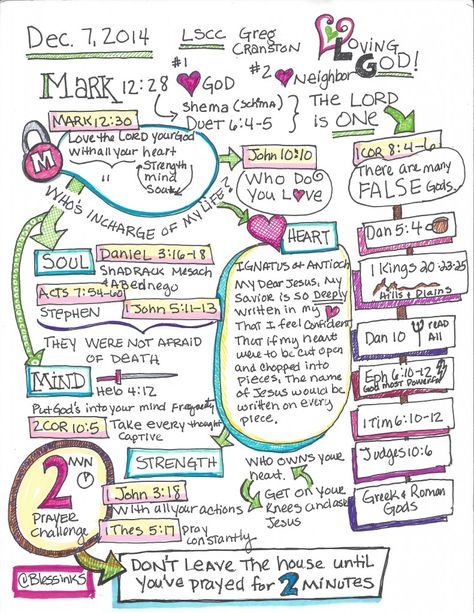 Dec. 7, 2014
LSCC Greg
Cranston
Loving
God!
#1
#2
Mark 12:28
God
Neighbor
shema (schma)
Duet 6:4-5
The Lord
is One
Mark 12:30
Love the Lord your God
with all your heart
" strength
mind
Soul
M
John 10:10
Who Do
You Love
Who's incharge of my life?
1 Cor 8:4-6
There are many
FALSE Gods.
Dan 5:4
1 Kings 20-22-25
Hills & Plains
Dan 10 read
All
Eph 6:10-12
God most Powerful
1 Tim 6:10-12
Judges 10:6
Greek & Roman
Gods
Heart
Ignatus of Antioch
My Dear Jesus, my
Savior is so Deeply
written in my
That I feel Confident
That if my heart
were to be cut open
and chopped into
pieces. The name
of Jesus would be
written on every
piece.
Soul
Daniel 3:16-18
Shadrack Mesach
& Abednego
Acts 7:54-60
Stephen
1 John 5:11-13
They were not afraid
of death
Mind
Heb 4:12
Put God's into your mind Frequently
2 Cor 10:5 Take every thought
captive
Strength
1 John 3:18
With all your actions
1 Thes 5:17 pray
constantly
Who owns your
heart.
Get on your
knees and ask
Jesus
2
MIN
P
Prayer
Challenge
@Blessinks
Don't leave the house until
you've prayed for 2 minutes